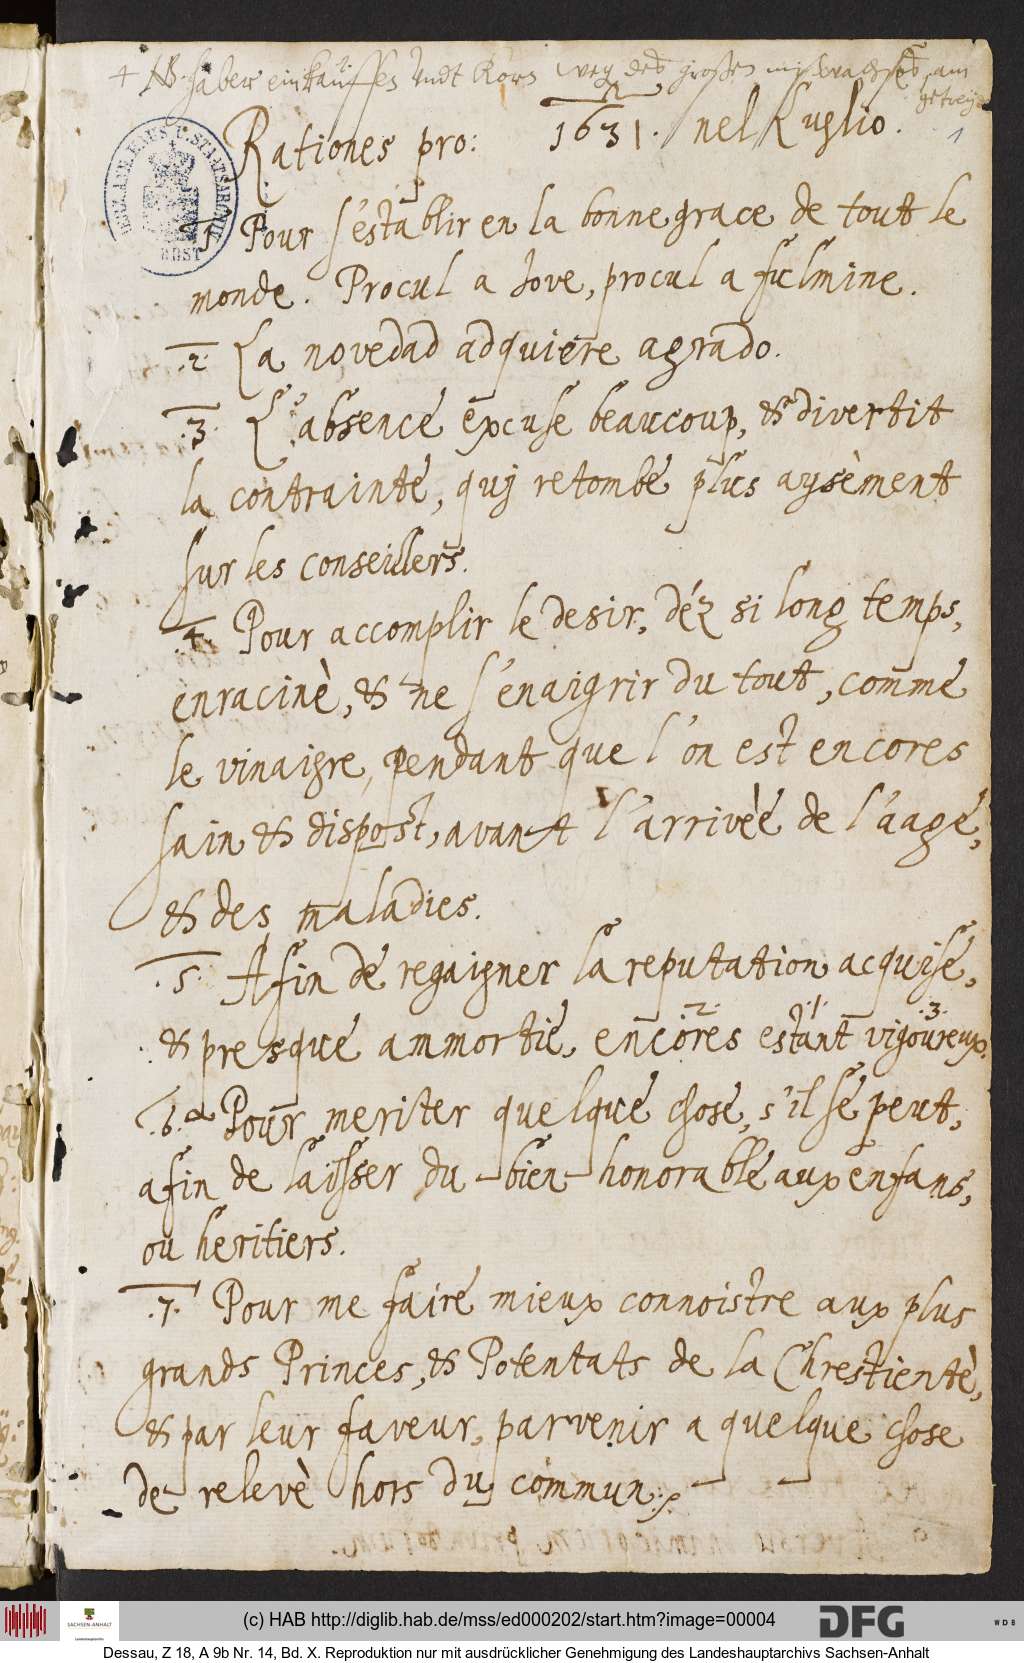 NB. Haber einkauffen vndt Korn weg. des großen mißwachses, am
getreyde
Rationes pro: 1631. nel Luglio. 1
1 Pour s'establir en la bonne grace de tout le
monde. Procul a Jove, procul a fulmine.
.2. La novedad adquiere agrado.
.3. L'absence excuse beaucoup, & divertit
la contrainte, quj retombe plus aysèment
sur les conseillers.
.4. Pour accomplir le desir, déz si long temps,
enracinè, & ne s'enaigrir du tout, comme
le vinaigre, pendant que l'on est encores
sain & dispost, avant l'arrivèe de l'aage,
& des maladies.
.5. Afin de regaigner la reputation acquise,
& presque ammortie, encores estant vigoureux.
.2. .1. .3.
.6. Pour meriter quelque chose, s'il se peut,
afin de laisser du bien honorable aux enfans,
ou heritiers.
.7. Pour me faire mieux connoistre aux plus
grands Princes, & Potentats de la Chrestientè,
& par leur faveur, parvenir a quelque chose
de relevè hors du commun.
(c) HAB http://diglib.hab.de/mss/ed000202/start.htm?image=00004
SACHSEN-ANHALT
DFG
WDB
Dessau, Z 18, A 9b Nr. 14, Bd. X. Reproduktion nur mit ausdrücklicher Genehmigung des Landeshauptarchivs Sachsen-Anhalt